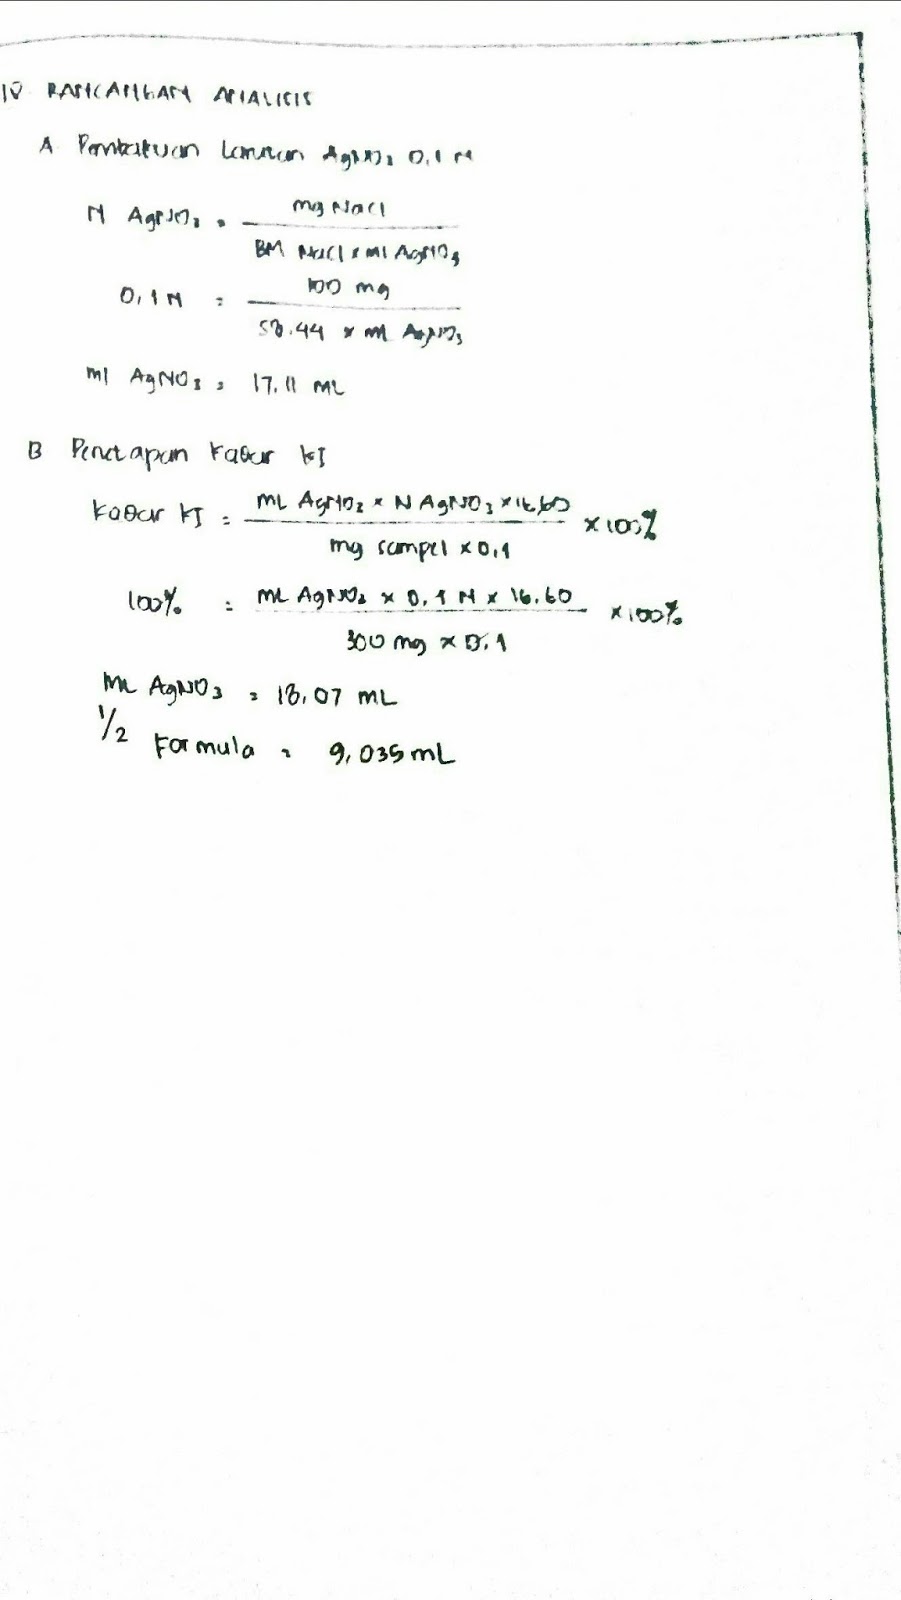 IV RANCANGAN ANALISIS
A Pembakuan Larutan AgNO3 0,1 N
N AgNO3 = mg NaCl
BM NaCl x ml AgNO3
0,1 N = 100 mg
58.44 x ml AgNO3
ml AgNO3 = 17.11 mL
B Penetapan kadar KI
kadar KI = mL AgNO3 x N AgNO3 x 16,60 x 100%
mg sampel x 0,1
100% = mL AgNO3 x 0,1 N x 16.60 x 100%
300 mg x 0.1
mL AgNO3 = 18,07 mL
1/2 Formula = 9,035 mL